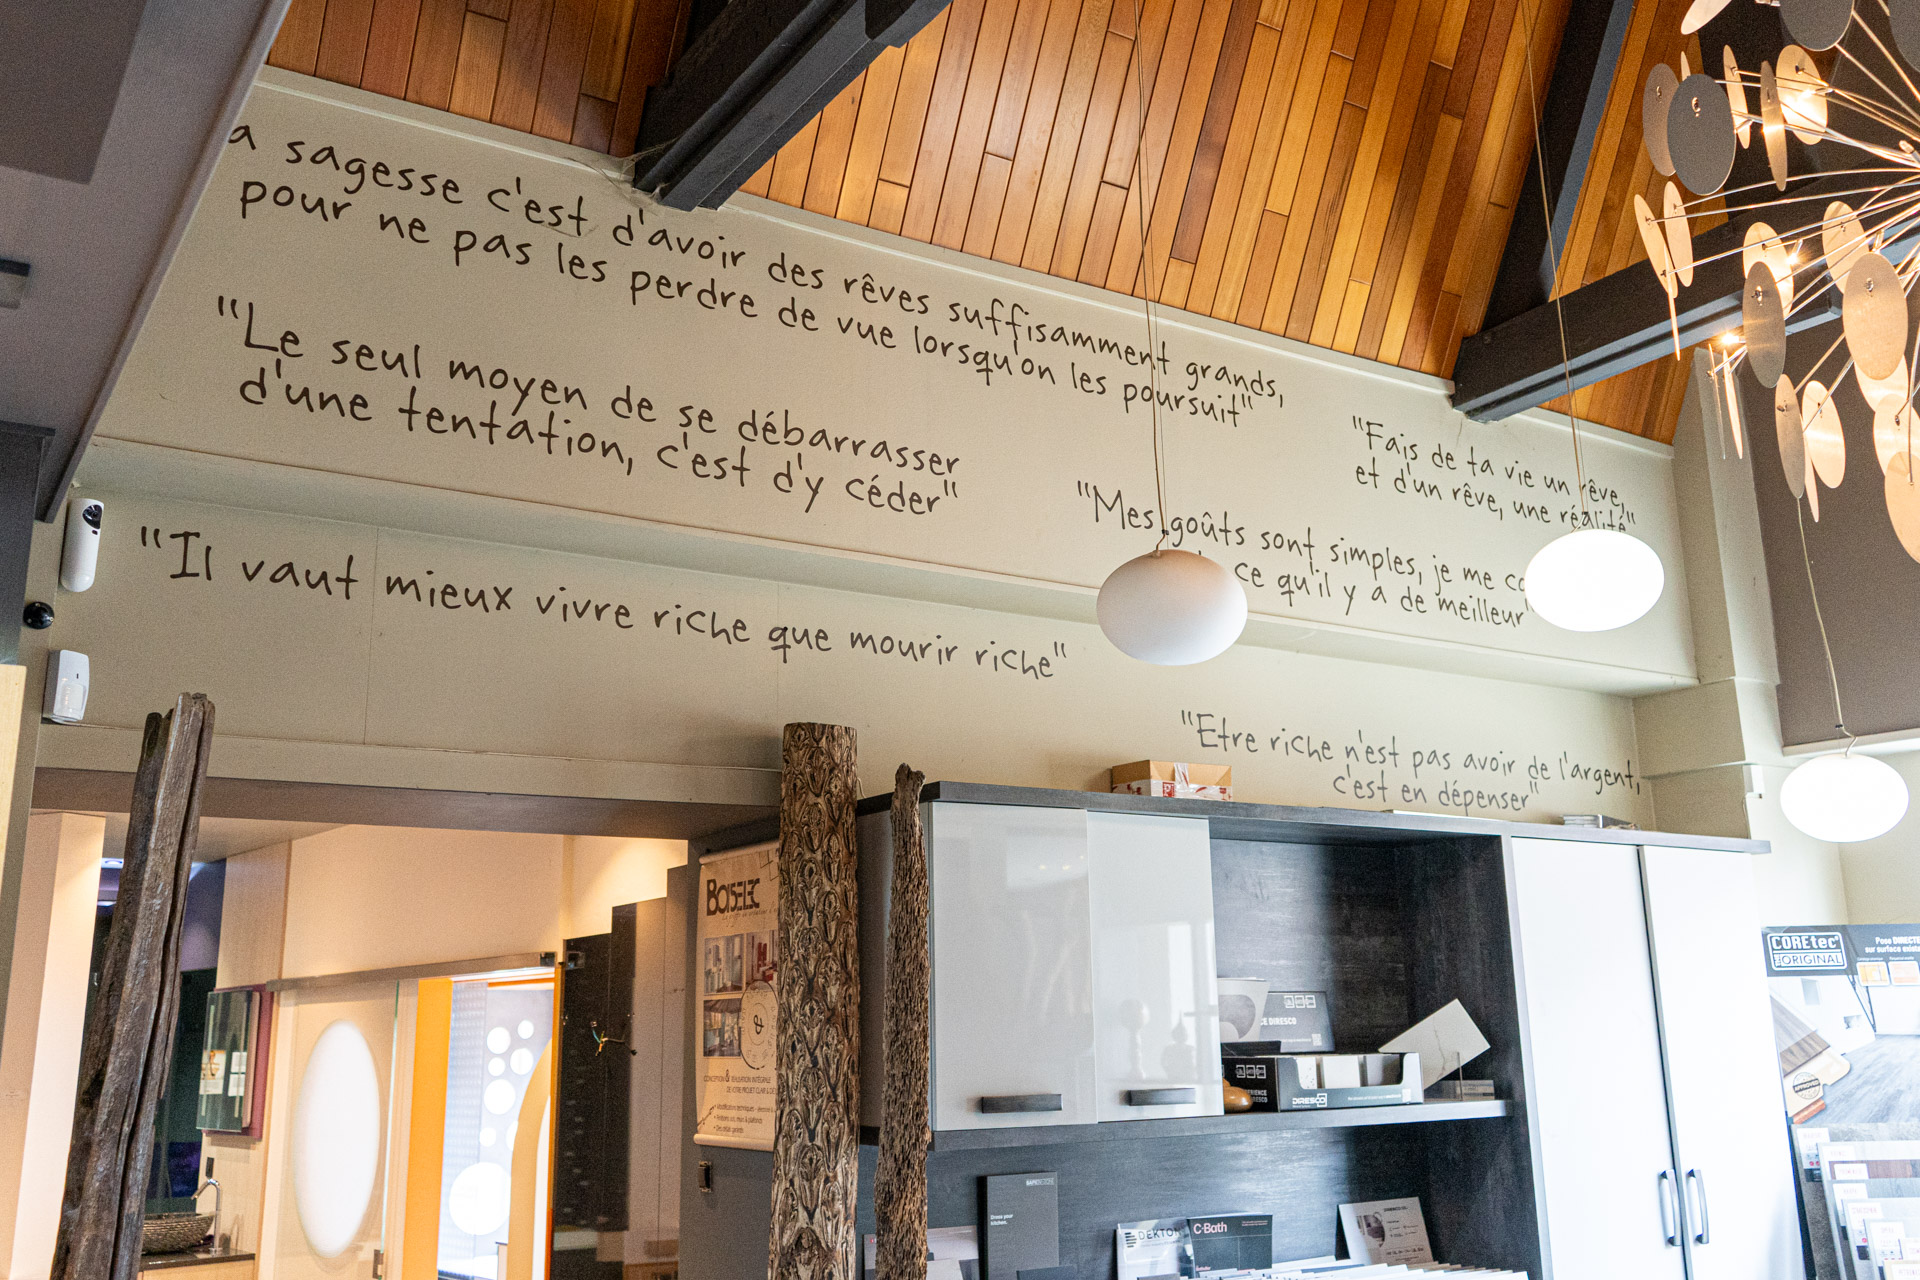 a sagesse c'est d'avoir des rêves suffisamment grands,
pour ne pas les perdre de vue lorsqu'on les poursuit"
"Le seul moyen de se débarrasser
d'une tentation, c'est d'y céder"
"Fais de ta vie un rêve,
et d'un rêve, une réalité"
"Mes goûts sont simples, je me co
ce qu'il y a de meilleur"
"Il vaut mieux vivre riche que mourir riche"
"Etre riche n'est pas avoir de l'argent,
c'est en dépenser"
BOISELEC
&
CONCEPTION & RÉALISATION INTÉGRALE
DE VOTRE PROJET CLAIR &
COREtec
ORIGINAL
Pose DIRECTE
sur surface
APPROVED
CE DIRESCO
DIRESCO
DEKTON
C-Bath